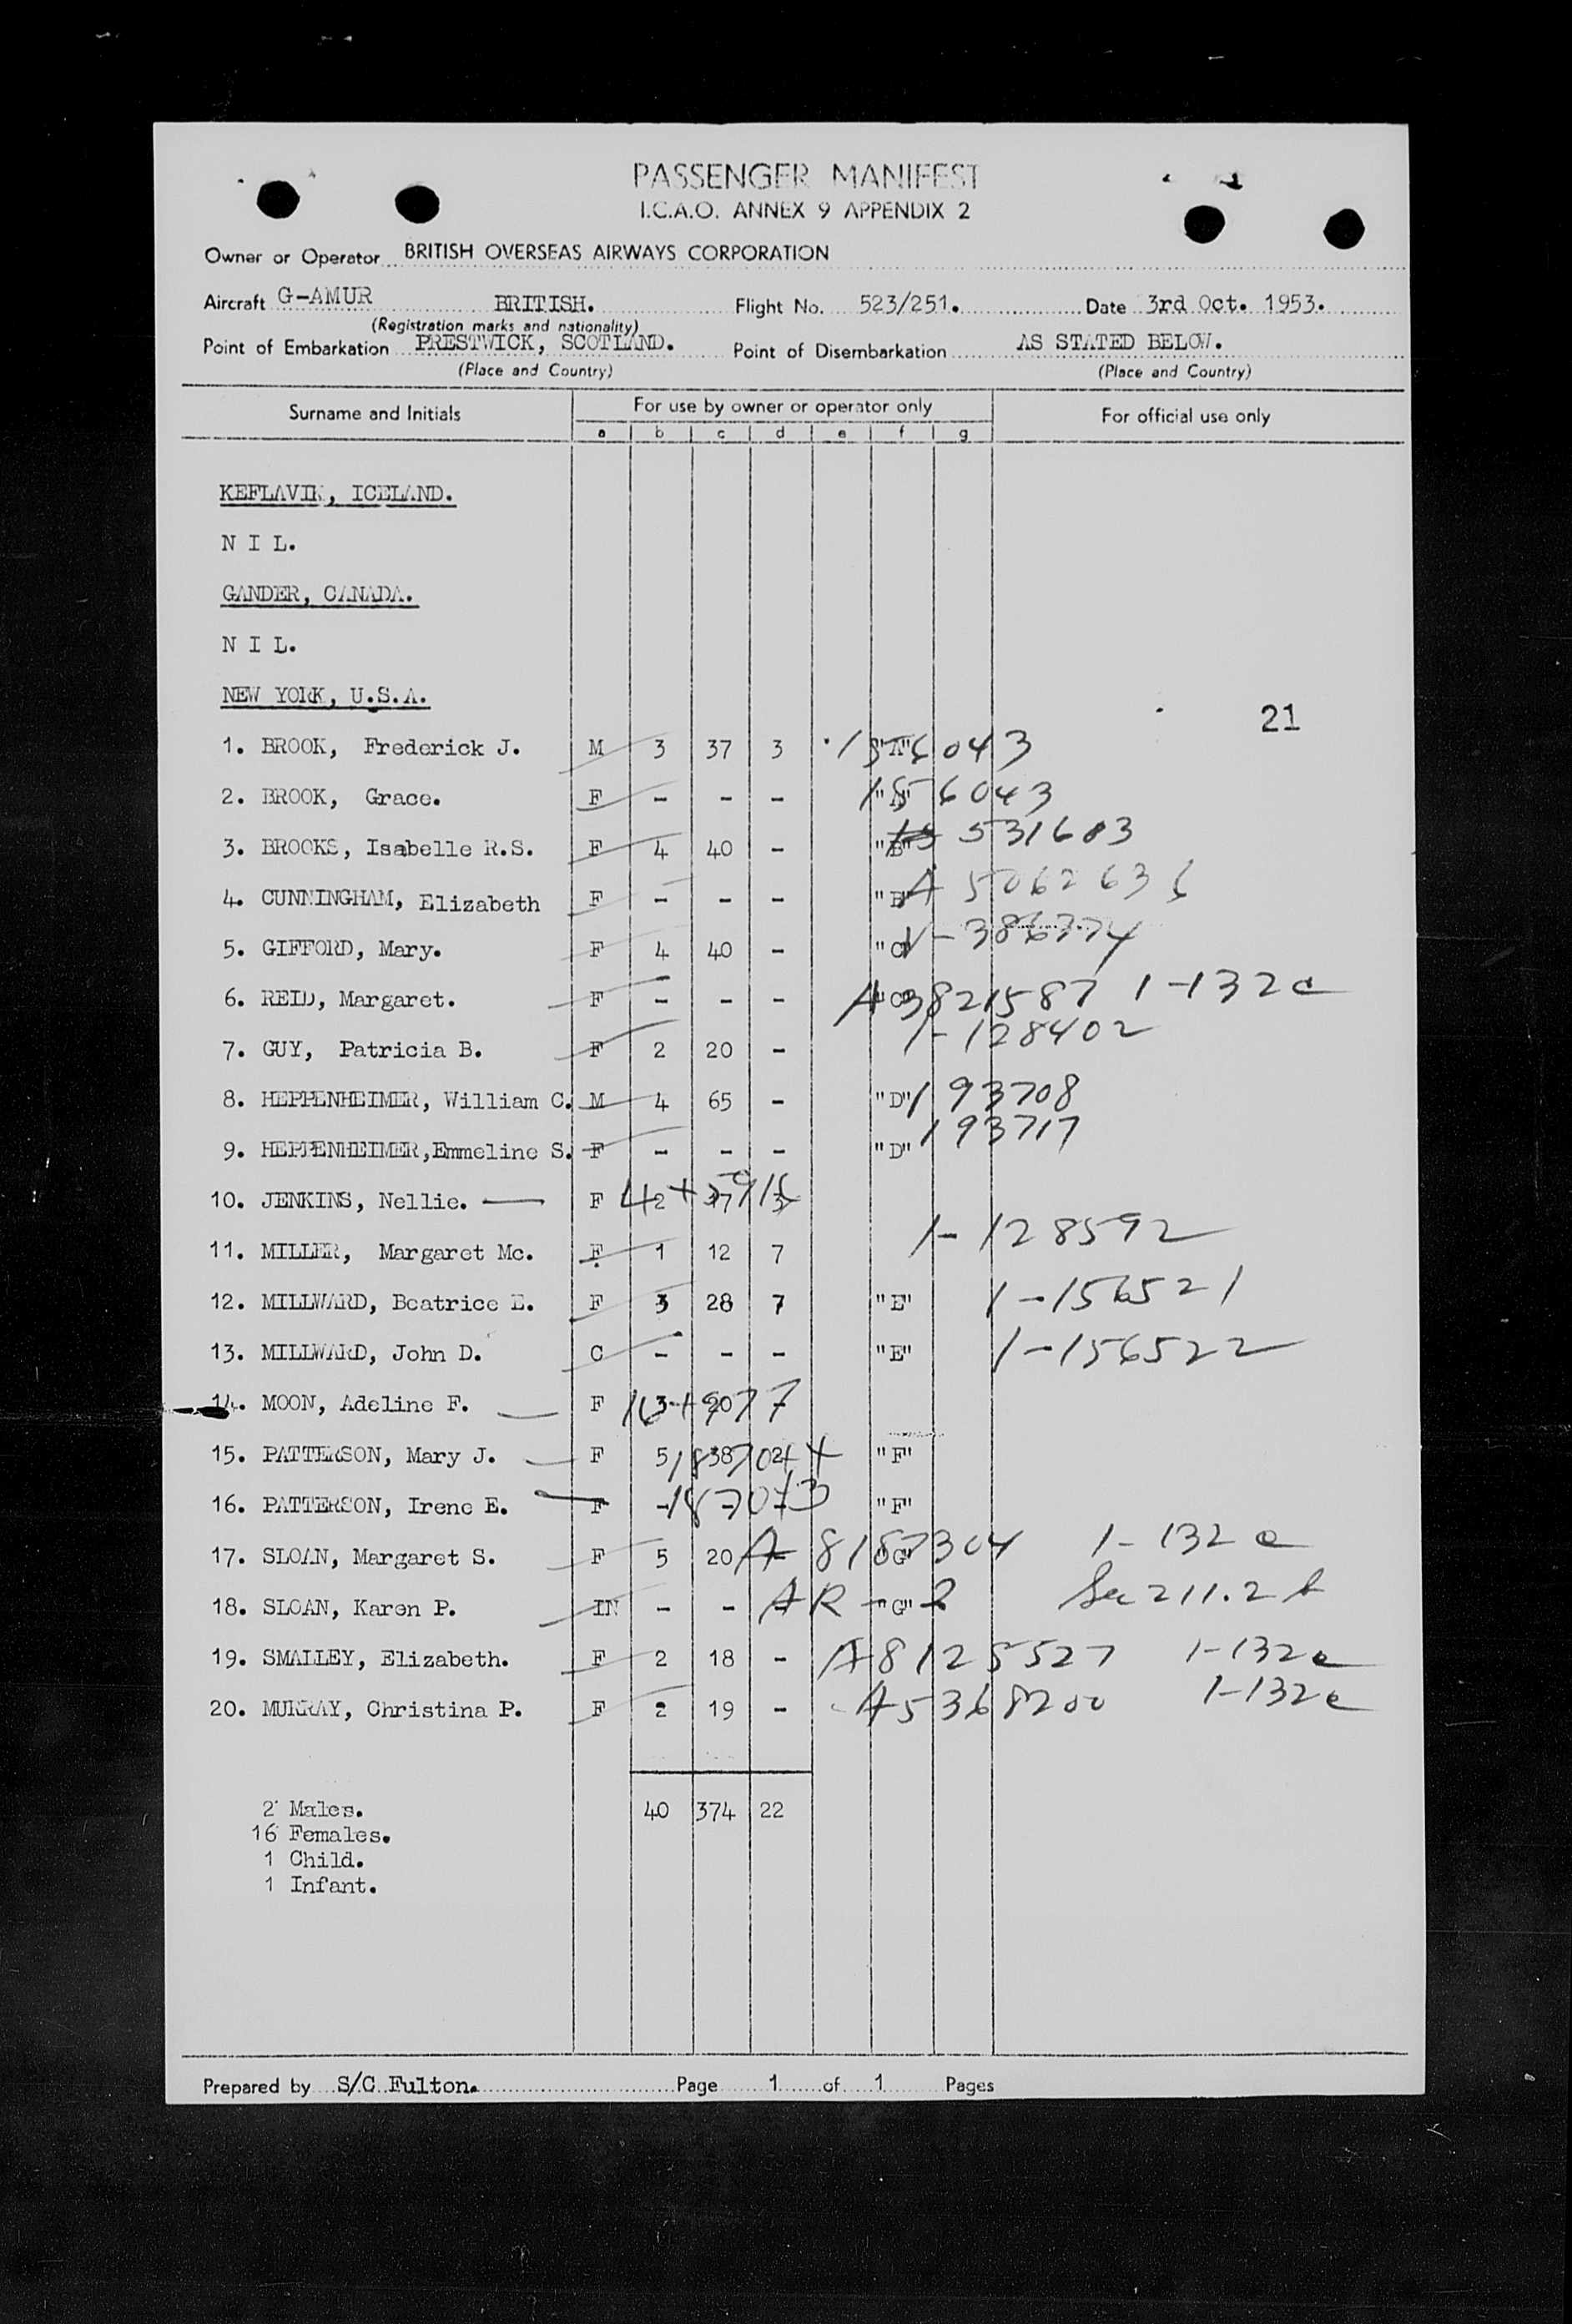 PASSENGER MANIFEST
I.C.A.O. ANNEX 9 APPENDIX 2
Owner or Operator BRITISH OVERSEAS AIRWAYS CORPORATION
Aircraft G-AMUR BRITISH. Flight No. 523/251. Date 3rd Oct. 1953.
(Registration marks and nationality)
Point of Embarkation PRESTWICK, SCOTLAND. Point of Disembarkation AS STATED BELOW.
(Place and Country) (Place and Country)
Surname and Initials For use by owner or operator only For official use only
a b c d e f g
KEFLAVIK, ICELAND.
N I L.
GANDER, CANADA.
N I L.
NEW YORK, U.S.A.
21
1. BROOK, Frederick J. M 3 37 3 "A" 156043
2. BROOK, Grace. F - - - "A" 156043
3. BROOKS, Isabelle R.S. F 4 40 - "B" 531603
4. CUNNINGHAM, Elizabeth F - - - "B" A 5062636
5. GIFFORD, Mary. F 4 40 - "C" V-386774
6. REID, Margaret. F - - - "C" A 3821587 1-132a
7. GUY, Patricia B. F 2 20 - 1-128402
8. HEPPENHEIMER, William C. M 4 65 - "D" 193708
9. HEPPENHEIMER, Emmeline S. F - - - "D" 193717
10. JENKINS, Nellie. F 2 17
11. MILLER, Margaret Mc. F 1 12 7 1-128592
12. MILLWARD, Beatrice E. F 3 28 7 "E" 1-156521
13. MILLWARD, John D. C - - - "E" 1-156522
14. MOON, Adeline F. F 3 20
15. PATTERSON, Mary J. F 5 38 2 "F"
16. PATTERSON, Irene E. F - - - "F"
17. SLOAN, Margaret S. F 5 20 - "G" A 8187304 1-132a
18. SLOAN, Karen P. IN - - - "G" AR-2 Sec 211.2 b
19. SMALLEY, Elizabeth. F 2 18 - A8125527 1-132a
20. MURRAY, Christina P. F 2 19 - A5368200 1-132a
2 Males. 40 374 22
16 Females.
1 Child.
1 Infant.
Prepared by S/C Fulton. Page 1 of 1 Pages